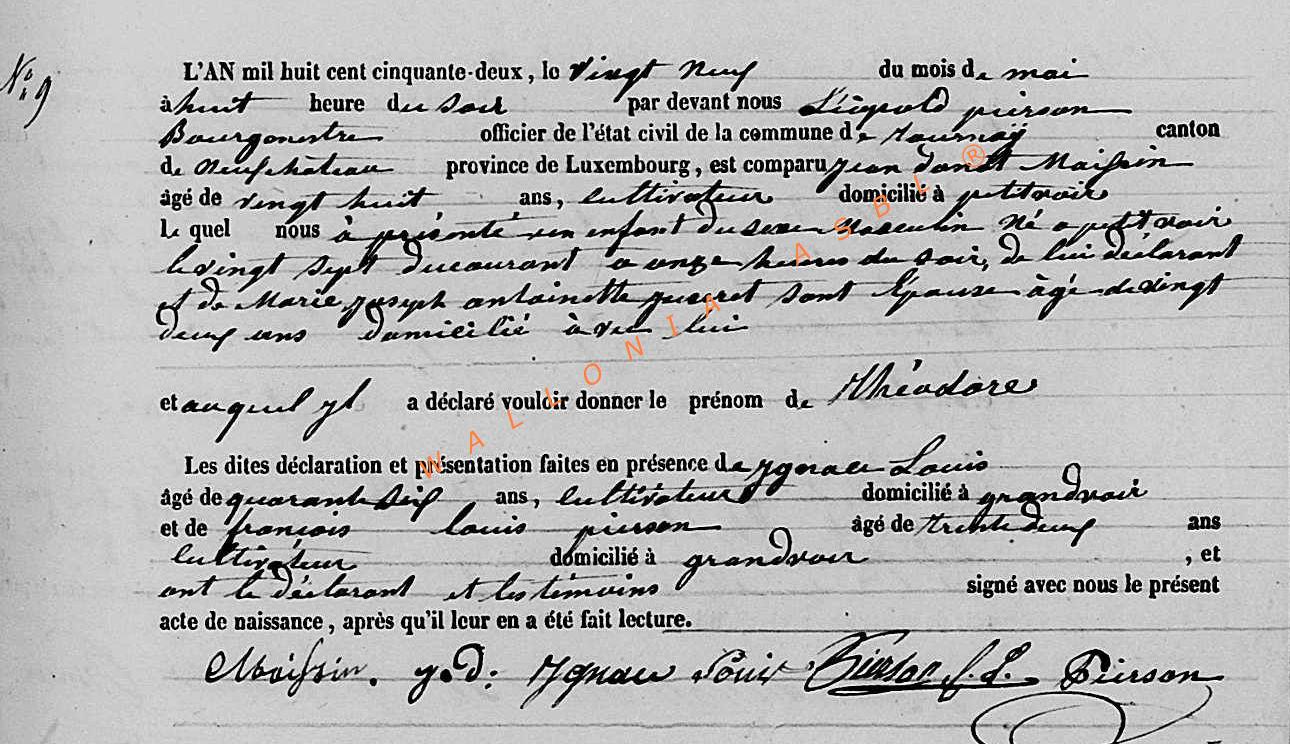 N° 9
L'AN mil huit cent cinquante-deux, le vingt neuf du mois de mai
à huit heure du soir par devant nous Léopold pierson
Bourgmestre officier de l'état civil de la commune de tournay canton
de Neufchateau province de Luxembourg, est comparu jean donat Maissin
âgé de vingt huit ans, cultivateur domicilié à petitvoir
le quel nous à présenté un enfant du sexe Masculin Né a petitvoir
le vingt sept du courant a onze heures du soir, de lui déclarant
et de Marie joseph antoinette sont Épouse âgé de vingt
deux ans domicilié àvec lui
et auquel yl a déclaré vouloir donner le prénom de Théodore
Les dites déclaration et présentation faites en présence de Ygnace Louis
âgé de quarante six ans, cultivateur domicilié à grandvoir
et de françois louis pierson âgé de trente deux ans
cultivateur domicilié à grandvoir , et
ont le déclarant et les témoins signé avec nous le présent
acte de naissance, après qu'il leur en a été fait lecture.
Maissin. y.d. Ygnace Louis Pierson f. L. Pierson
WALLONIA ASBL ®